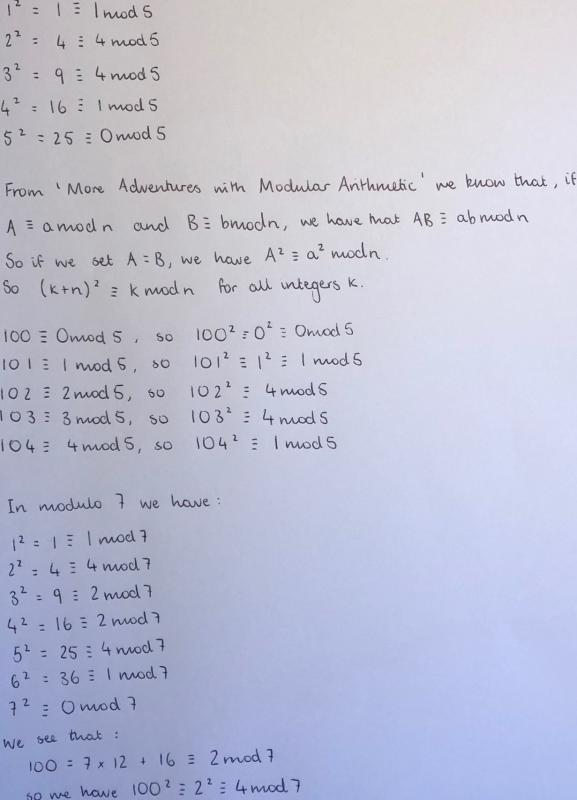 1² = 1 ≡ 1 mod 5
2² = 4 ≡ 4 mod 5
3² = 9 ≡ 4 mod 5
4² = 16 ≡ 1 mod 5
5² = 25 ≡ 0 mod 5
From 'More Adventures with Modular Arithmetic' we know that, if
A ≡ a mod n and B ≡ b mod n, we have that AB ≡ ab mod n
So if we set A = B, we have A² ≡ a² mod n.
So (k+n)² ≡ k mod n for all integers k.
100 ≡ 0 mod 5, so 100² ≡ 0² ≡ 0 mod 5
101 ≡ 1 mod 5, so 101² ≡ 1² ≡ 1 mod 5
102 ≡ 2 mod 5, so 102² ≡ 4 mod 5
103 ≡ 3 mod 5, so 103² ≡ 4 mod 5
104 ≡ 4 mod 5, so 104² ≡ 1 mod 5
In modulo 7 we have:
1² = 1 ≡ 1 mod 7
2² = 4 ≡ 4 mod 7
3² = 9 ≡ 2 mod 7
4² = 16 ≡ 2 mod 7
5² = 25 ≡ 4 mod 7
6² = 36 ≡ 1 mod 7
7² ≡ 0 mod 7
We see that:
100 = 7 × 12 + 16 ≡ 2 mod 7
so we have 100² ≡ 2² ≡ 4 mod 7